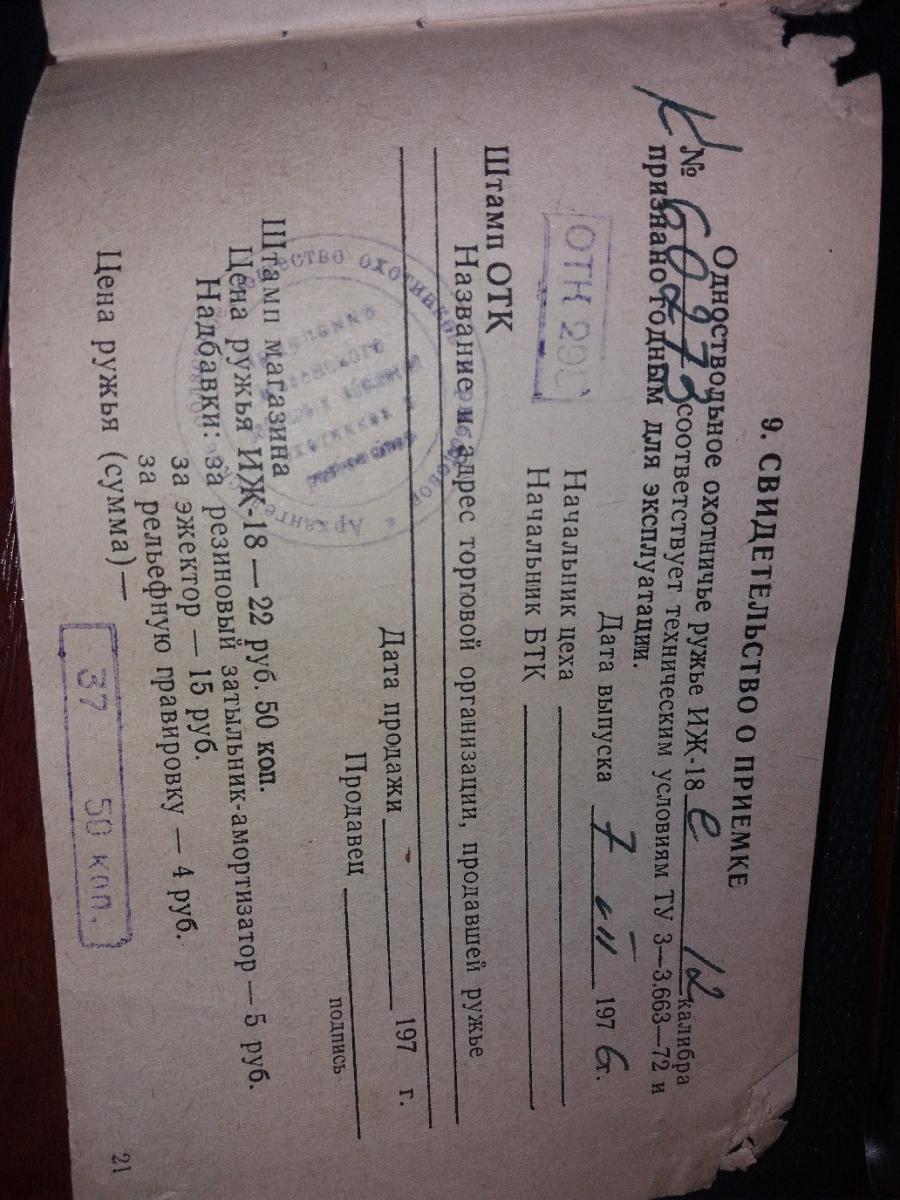 9. СВИДЕТЕЛЬСТВО О ПРИЕМКЕ
Одноствольное охотничье ружье ИЖ-18 е 12 калибра
№ 60273 соответствует техническим условиям ТУ 3—3.663—72 и
признано годным для эксплуатации.
Дата выпуска 7 VII 1976 г.
ОТК
Начальник цеха
Начальник БТК
Штамп ОТК
Название и адрес торговой организации, продавшей ружье
Дата продажи 197 г.
Продавец
подпись
общество охотников
Штамп магазина
Цена ружья ИЖ-18 — 22 руб. 50 коп.
Надбавки: за резиновый затыльник-амортизатор — 5 руб.
за эжектор — 15 руб.
за рельефную гравировку — 4 руб.
Цена ружья (сумма) — 37 50 коп.
21